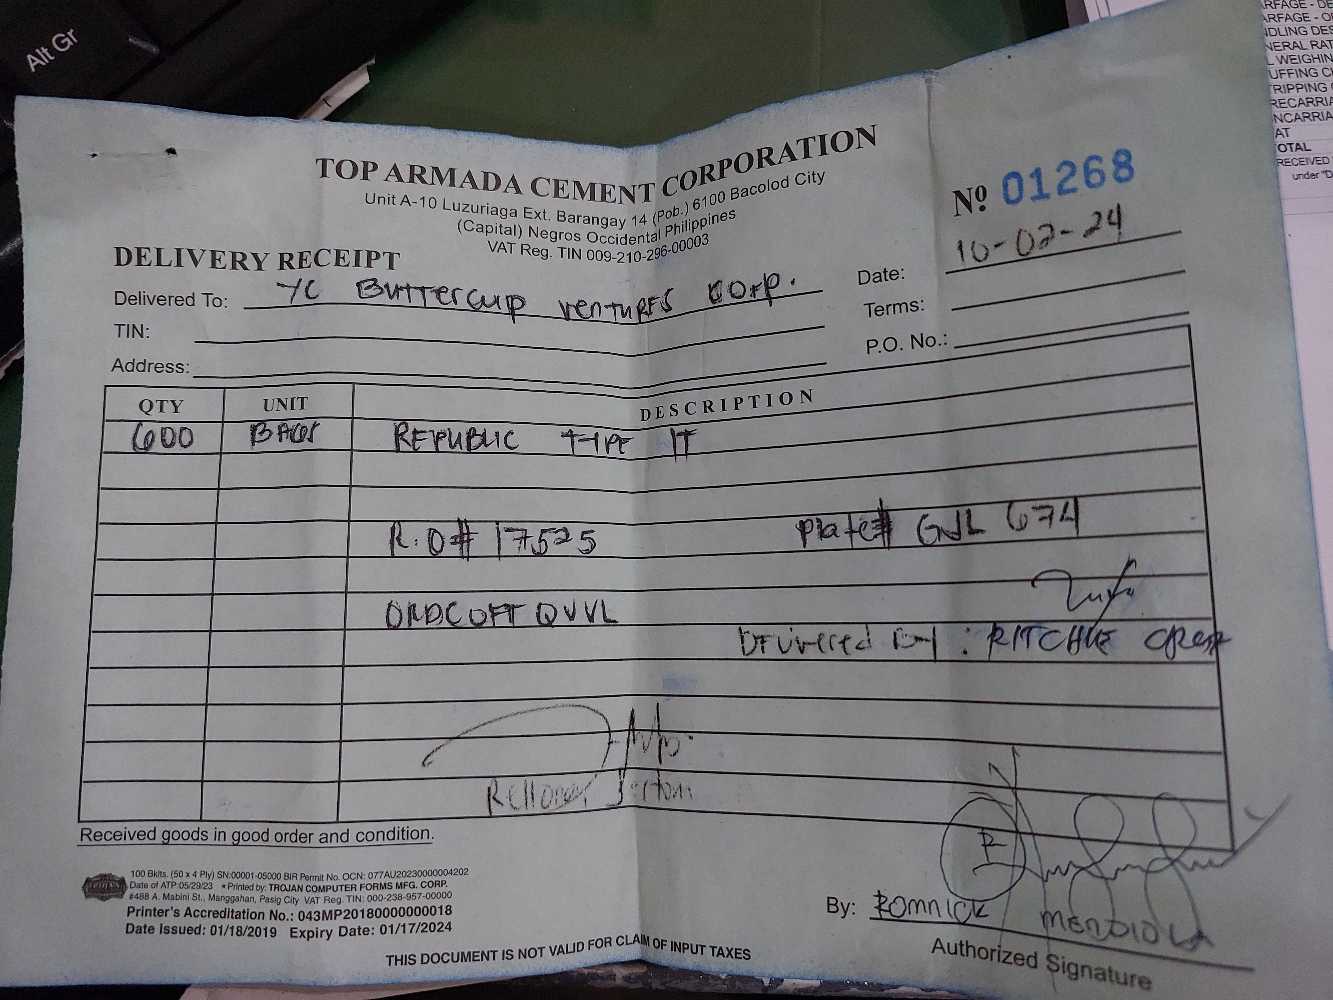 Alt Gr
TOP ARMADA CEMENT CORPORATION
Unit A-10 Luzuriaga Ext. Barangay 14 (Pob.) 6100 Bacolod City
(Capital) Negros Occidental Philippines
VAT Reg. TIN 009-210-296-00003
Nº 01268
DELIVERY RECEIPT
Date: 10-02-24
Delivered To: YC Buttercup ventures corp.
Terms:
TIN:
P.O. No.:
Address:
QTY UNIT DESCRIPTION
600 BAGS REPUBLIC TYPE 1T
R.O# 17525 Plate# GJL 674
Delivered By: RITCHIE
Received goods in good order and condition.
100 Bklts. (50 x 4 Ply) SN:00001-05000 BIR Permit No. OCN: 077AU20230000004202
Date of ATP:05/29/23 *Printed by: TROJAN COMPUTER FORMS MFG. CORP.
#488 A. Mabini St., Manggahan, Pasig City VAT Reg. TIN: 000-238-957-00000
Printer's Accreditation No.: 043MP20180000000018
Date Issued: 01/18/2019 Expiry Date: 01/17/2024
By: ROMNICK MENDIOLA
Authorized Signature
THIS DOCUMENT IS NOT VALID FOR CLAIM OF INPUT TAXES